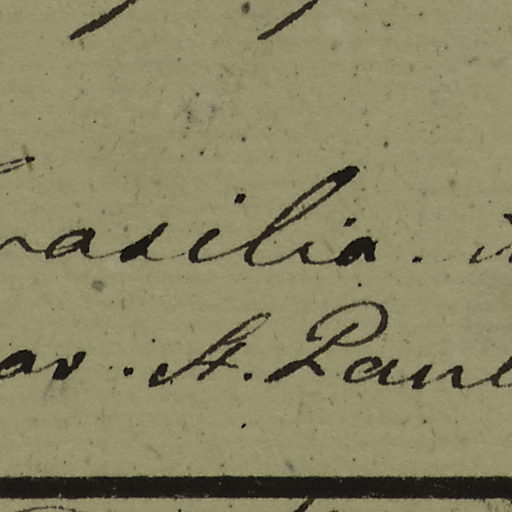 rasilia. i
ar. St. Paul